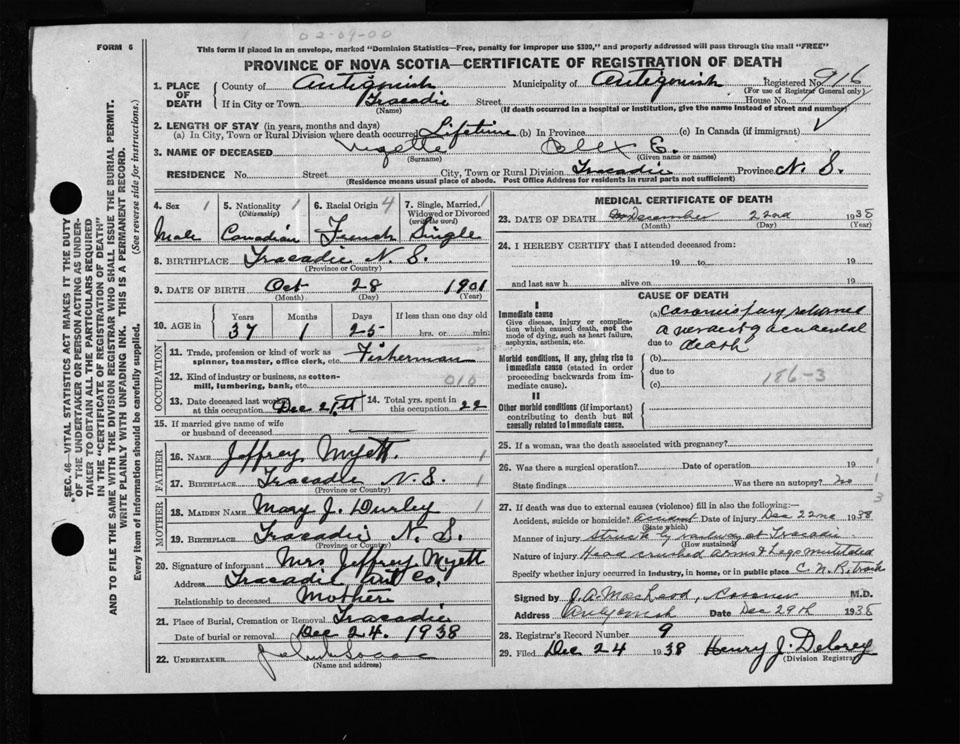 02-09-00
FORM 6
This form if placed in an envelope, marked "Dominion Statistics—Free, penalty for improper use $300," and properly addressed will pass through the mail "FREE"
PROVINCE OF NOVA SCOTIA—CERTIFICATE OF REGISTRATION OF DEATH
*SEC. 46—VITAL STATISTICS ACT MAKES IT THE DUTY
OF THE UNDERTAKER OR PERSON ACTING AS UNDER-
TAKER TO OBTAIN ALL THE PARTICULARS REQUIRED
IN THE "CERTIFICATE OF REGISTRATION OF DEATH"
AND TO FILE THE SAME WITH THE DIVISION REGISTRAR WHO SHALL ISSUE THE BURIAL PERMIT.
WRITE PLAINLY WITH UNFADING INK. THIS IS A PERMANENT RECORD.
Every item of information should be carefully supplied. (See reverse side for instructions.)
1. PLACE OF DEATH
County of Antigonish Municipality of Antigonish Registered No. 916
(For use of Registrar General only)
If in City or Town Tracadie Street House No.
(Name) (If death occurred in a hospital or institution, give the name instead of street and number)
2. LENGTH OF STAY (in years, months and days)
(a) In City, Town or Rural Division where death occurred Lifetime (b) In Province (c) In Canada (if immigrant)
3. NAME OF DECEASED Myette Alex E.
(Surname) (Given name or names)
RESIDENCE No. Street City, Town or Rural Division Tracadie Province N. S.
(Residence means usual place of abode. Post Office Address for residents in rural parts not sufficient)
4. Sex 1 Male
5. Nationality 1 (Citizenship) Canadian
6. Racial Origin 4 French
7. Single, Married, Widowed or Divorced (write the word) 1 Single
8. BIRTHPLACE Tracadie N. S.
(Province or Country)
9. DATE OF BIRTH Oct 28 1901
(Month) (Day) (Year)
10. AGE in Years Months Days If less than one day old
37 1 25 hrs. or min.
OCCUPATION
11. Trade, profession or kind of work as spinner, teamster, office clerk, etc. Fisherman
12. Kind of industry or business, as cotton-mill, lumbering, bank, etc. 010
13. Date deceased last worked at this occupation Dec
14. Total yrs. spent in this occupation 22
15. If married give name of wife or husband of deceased
FATHER
16. NAME Jeffrey Myett 1
17. BIRTHPLACE Tracadie N. S. 1
(Province or Country)
MOTHER
18. MAIDEN NAME Mary J. Durley 1
19. BIRTHPLACE Tracadie N. S.
(Province or Country)
20. Signature of informant Mrs Jeffrey Myett
Address Tracadie Ant Co.
Relationship to deceased Mother
21. Place of Burial, Cremation or Removal Tracadie
Date of burial or removal Dec 24. 1938
22. UNDERTAKER John Isaac
(Name and address)
MEDICAL CERTIFICATE OF DEATH
23. DATE OF DEATH December 22nd 1938
(Month) (Day) (Year)
24. I HEREBY CERTIFY that I attended deceased from:
19 to 19
and last saw h alive on 19
CAUSE OF DEATH
I
Immediate cause
Give disease, injury or complication which caused death, not the mode of dying, such as heart failure, asphyxia, asthenia, etc.
(a) Coroners jury returned
a verdict of accidental
due to death
Morbid conditions, if any, giving rise to immediate cause (stated in order proceeding backwards from immediate cause).
(b)
due to
(c) 186-3
II
Other morbid conditions (if important) contributing to death but not causally related to immediate cause.
25. If a woman, was the death associated with pregnancy?
26. Was there a surgical operation? Date of operation 19
State findings Was there an autopsy? no
27. If death was due to external causes (violence) fill in also the following:—
Accident, suicide or homicide? accident Date of injury Dec 22nd 1938
(State which)
Manner of injury Struck by railway at Tracadie
(How sustained)
Nature of injury Head crushed arms & legs mutilated
Specify whether injury occurred in industry, in home, or in public place C. N. R. track
Signed by J. A. MacLeod, Coroner M.D.
Address Antigonish Date Dec 29th 1938
28. Registrar's Record Number 9
29. Filed Dec 24 1938 Henry J. Delorey
(Division Registrar)